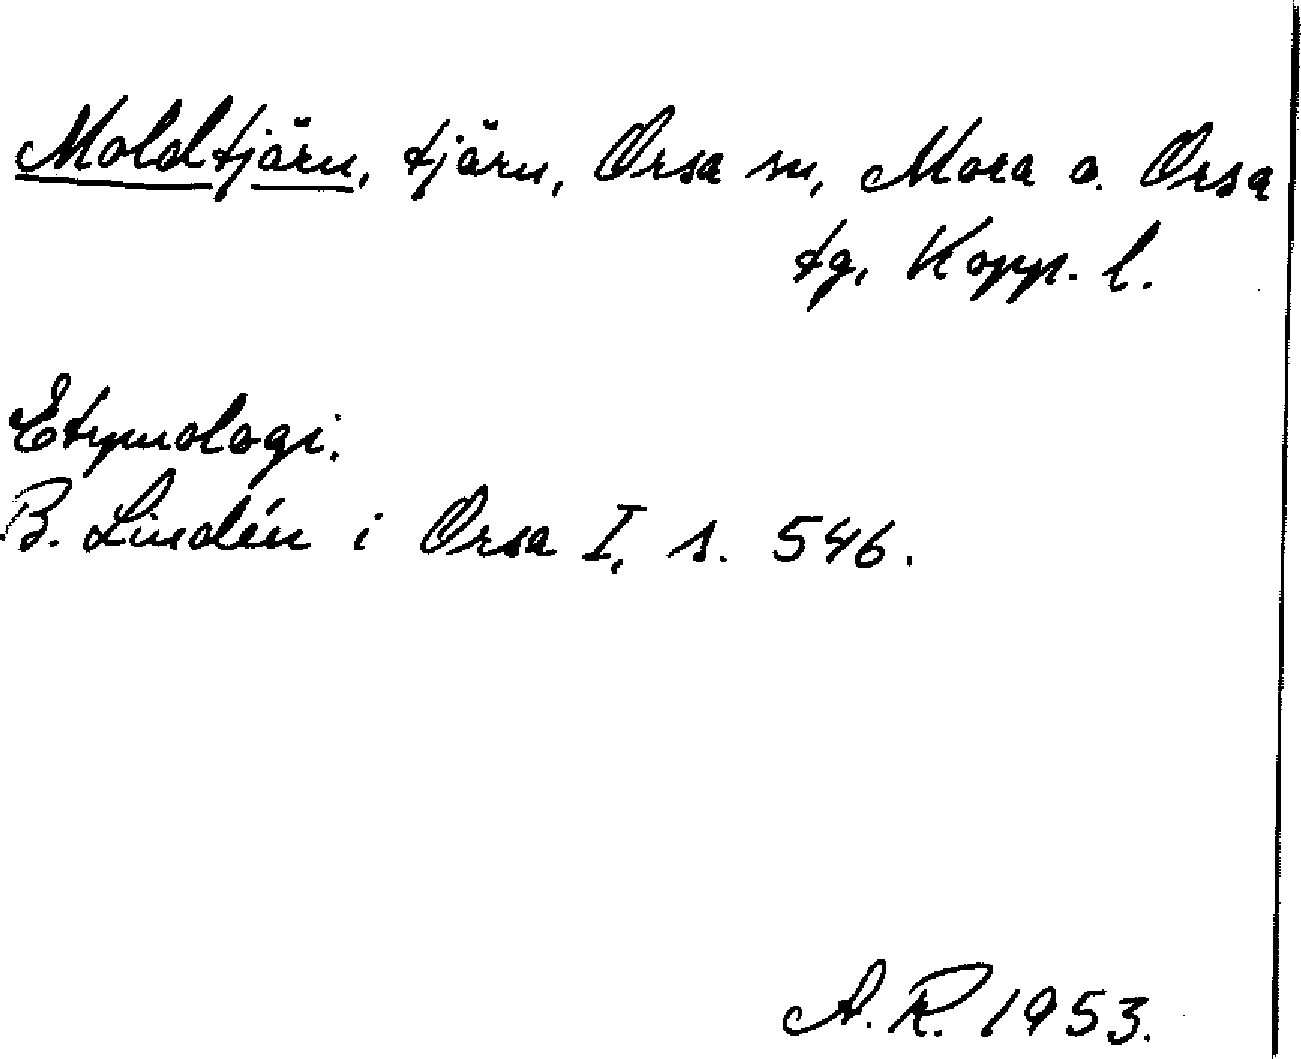 Moldtjärn, tjärn, Orsa sn, Mora o. Orsa
tg, Kopp. l.
Etymologi.
B. Lindén i Orsa I, s. 546.
A. R. 1953.